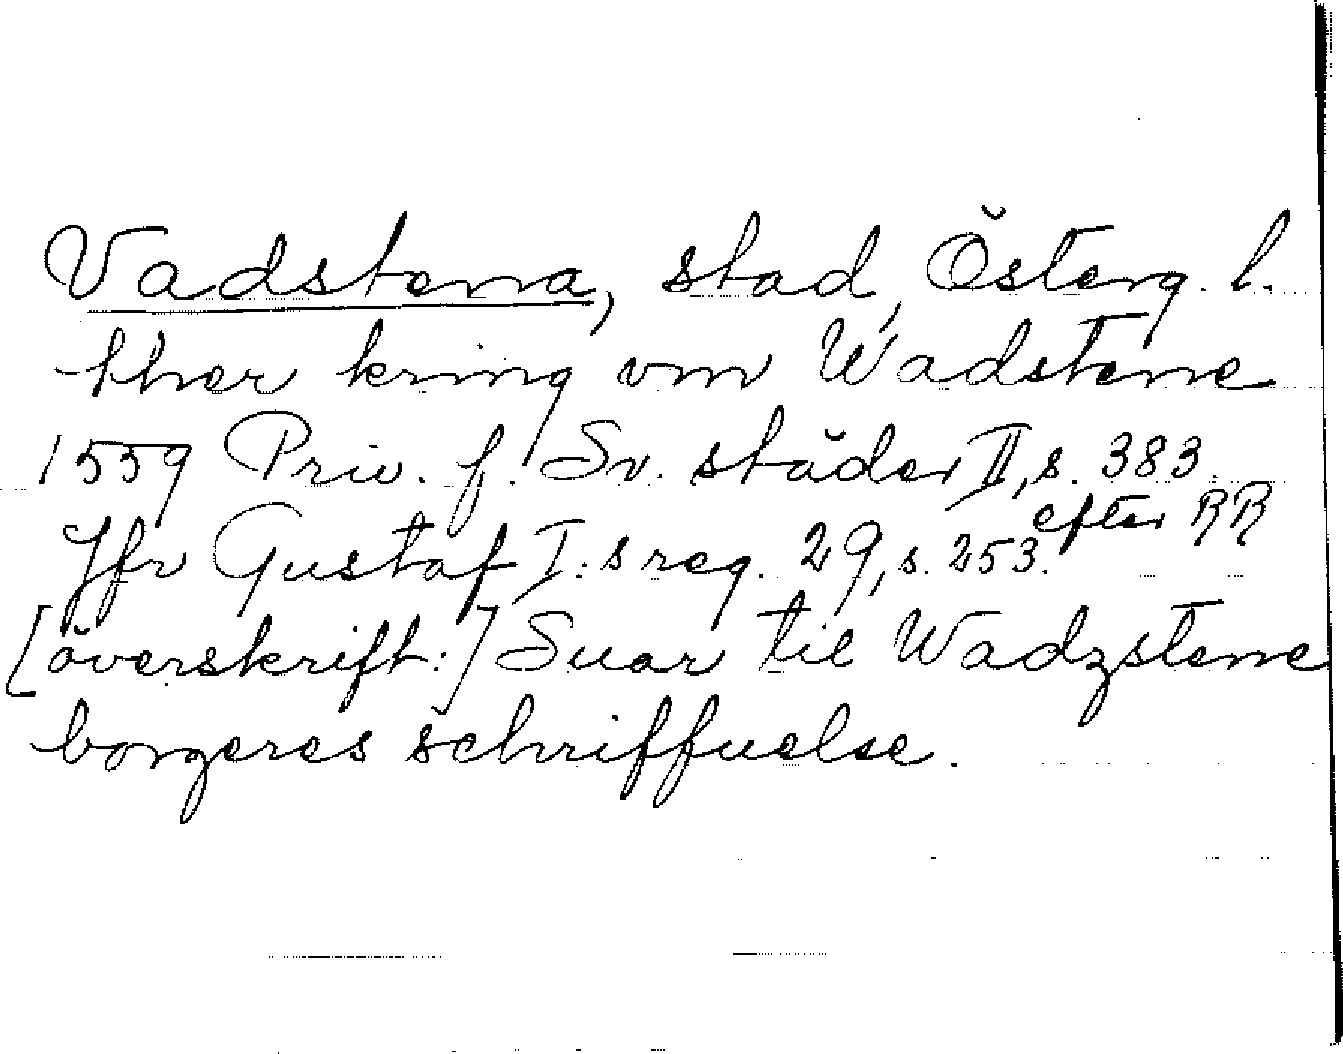 Vadstena, stad, Österg. l.
ther kring vm Wadstene
1559 Priv. f. Sv. städer II, s. 383.
efter RR
Jfr Gustaf I:s reg. 29, s. 253.
[överskrift:] Suar til Wadzstene
borgeres schriffuelse.